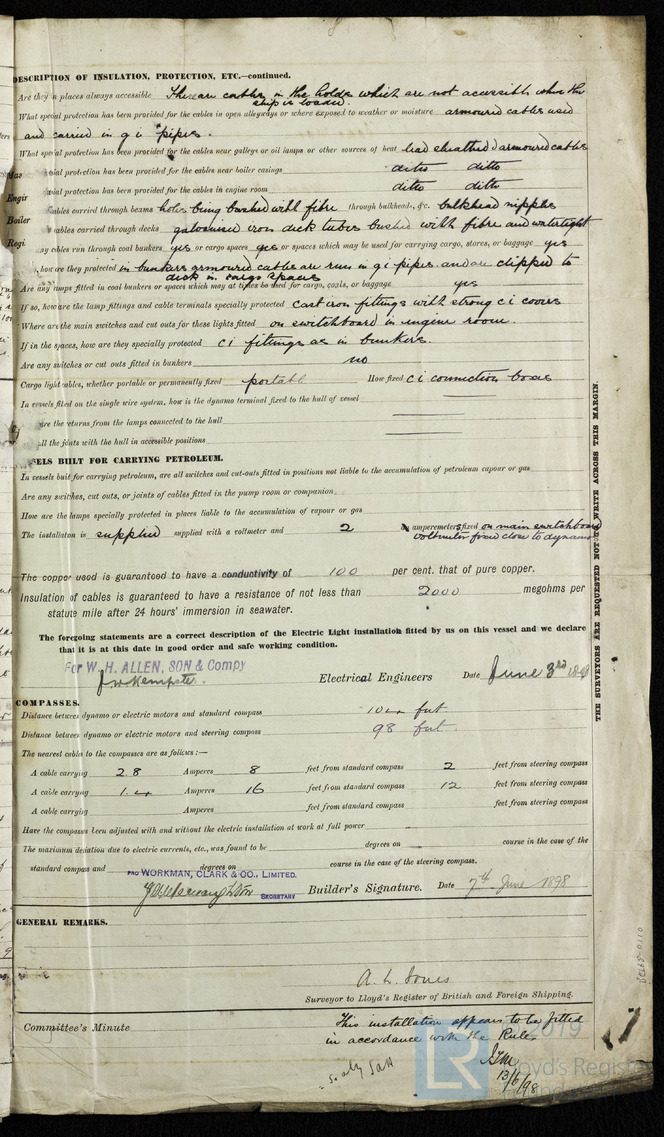 DESCRIPTION OF INSULATION, PROTECTION, ETC.—continued.
Are they in places always accessible There are cables in the holds which are not accessible when the
ship is loaded.
What special protection has been provided for the cables in open alleyways or where exposed to weather or moisture armoured cables used
and carried in g i pipes.
What special protection has been provided for the cables near galleys or oil lamps or other sources of heat lead sheathed & armoured cables
special protection has been provided for the cables near boiler casings ditto ditto
special protection has been provided for the cables in engine room ditto ditto
cables carried through beams holes being bushed with fibre through bulkheads, &c. bulkhead nipples
cables carried through decks galvanised iron deck tubes bushed with fibre and watertight
any cables run through coal bunkers yes or cargo spaces yes or spaces which may be used for carrying cargo, stores, or baggage yes
how are they protected in bunkers armoured cables are run in g i pipes and are clipped to
deck in cargo spaces
Are any lamps fitted in coal bunkers or spaces which may at times be used for cargo, coals, or baggage yes
If so, how are the lamp fittings and cable terminals specially protected cast iron fittings with strong c i covers
Where are the main switches and cut outs for these lights fitted on switchboard in engine room.
If in the spaces, how are they specially protected c i fittings as in bunkers.
Are any switches or cut outs fitted in bunkers no
Cargo light cables, whether portable or permanently fixed portable How fixed c i connection boxes
In vessels fitted on the single wire system, how is the dynamo terminal fixed to the hull of vessel
are the returns from the lamps connected to the hull
all the joints with the hull in accessible positions
SELS BUILT FOR CARRYING PETROLEUM.
In vessels built for carrying petroleum, are all switches and cut-outs fitted in positions not liable to the accumulation of petroleum vapour or gas
Are any switches, cut outs, or joints of cables fitted in the pump room or companion
How are the lamps specially protected in places liable to the accumulation of vapour or gas
The installation is supplied supplied with a voltmeter and 2 amperemeters fixed on main switchboard
voltmeter fixed close to dynamo
The copper used is guaranteed to have a conductivity of 100 per cent. that of pure copper.
Insulation of cables is guaranteed to have a resistance of not less than 2000 megohms per
statute mile after 24 hours' immersion in seawater.
The foregoing statements are a correct description of the Electric Light installation fitted by us on this vessel and we declare
that it is at this date in good order and safe working condition.
For W. H. ALLEN, SON & Compy
J W Kempster. Electrical Engineers Date June 3rd 1898
COMPASSES.
Distance between dynamo or electric motors and standard compass 104 feet
Distance between dynamo or electric motors and steering compass 98 feet.
The nearest cable to the compasses are as follows:—
A cable carrying 2.8 Amperes 8 feet from standard compass 2 feet from steering compass
A cable carrying 1.4 Amperes 16 feet from standard compass 12 feet from steering compass
A cable carrying Amperes feet from standard compass feet from steering compass
Have the compasses been adjusted with and without the electric installation at work at full power
The maximum deviation due to electric currents, etc., was found to be degrees on course in the case of the
standard compass and degrees on course in the case of the steering compass.
PRO WORKMAN, CLARK & CO., LIMITED.
SECRETARY Builder's Signature. Date 7th June 1898
GENERAL REMARKS.
A. L. Jones
Surveyor to Lloyd's Register of British and Foreign Shipping.
Committee's Minute
This installation appears to be fitted
in accordance with the Rules
13/6/98
THE SURVEYORS ARE REQUESTED NOT TO WRITE ACROSS THIS MARGIN.
LR
2019
Lloyd's Register
Engir
Boiler
Regi